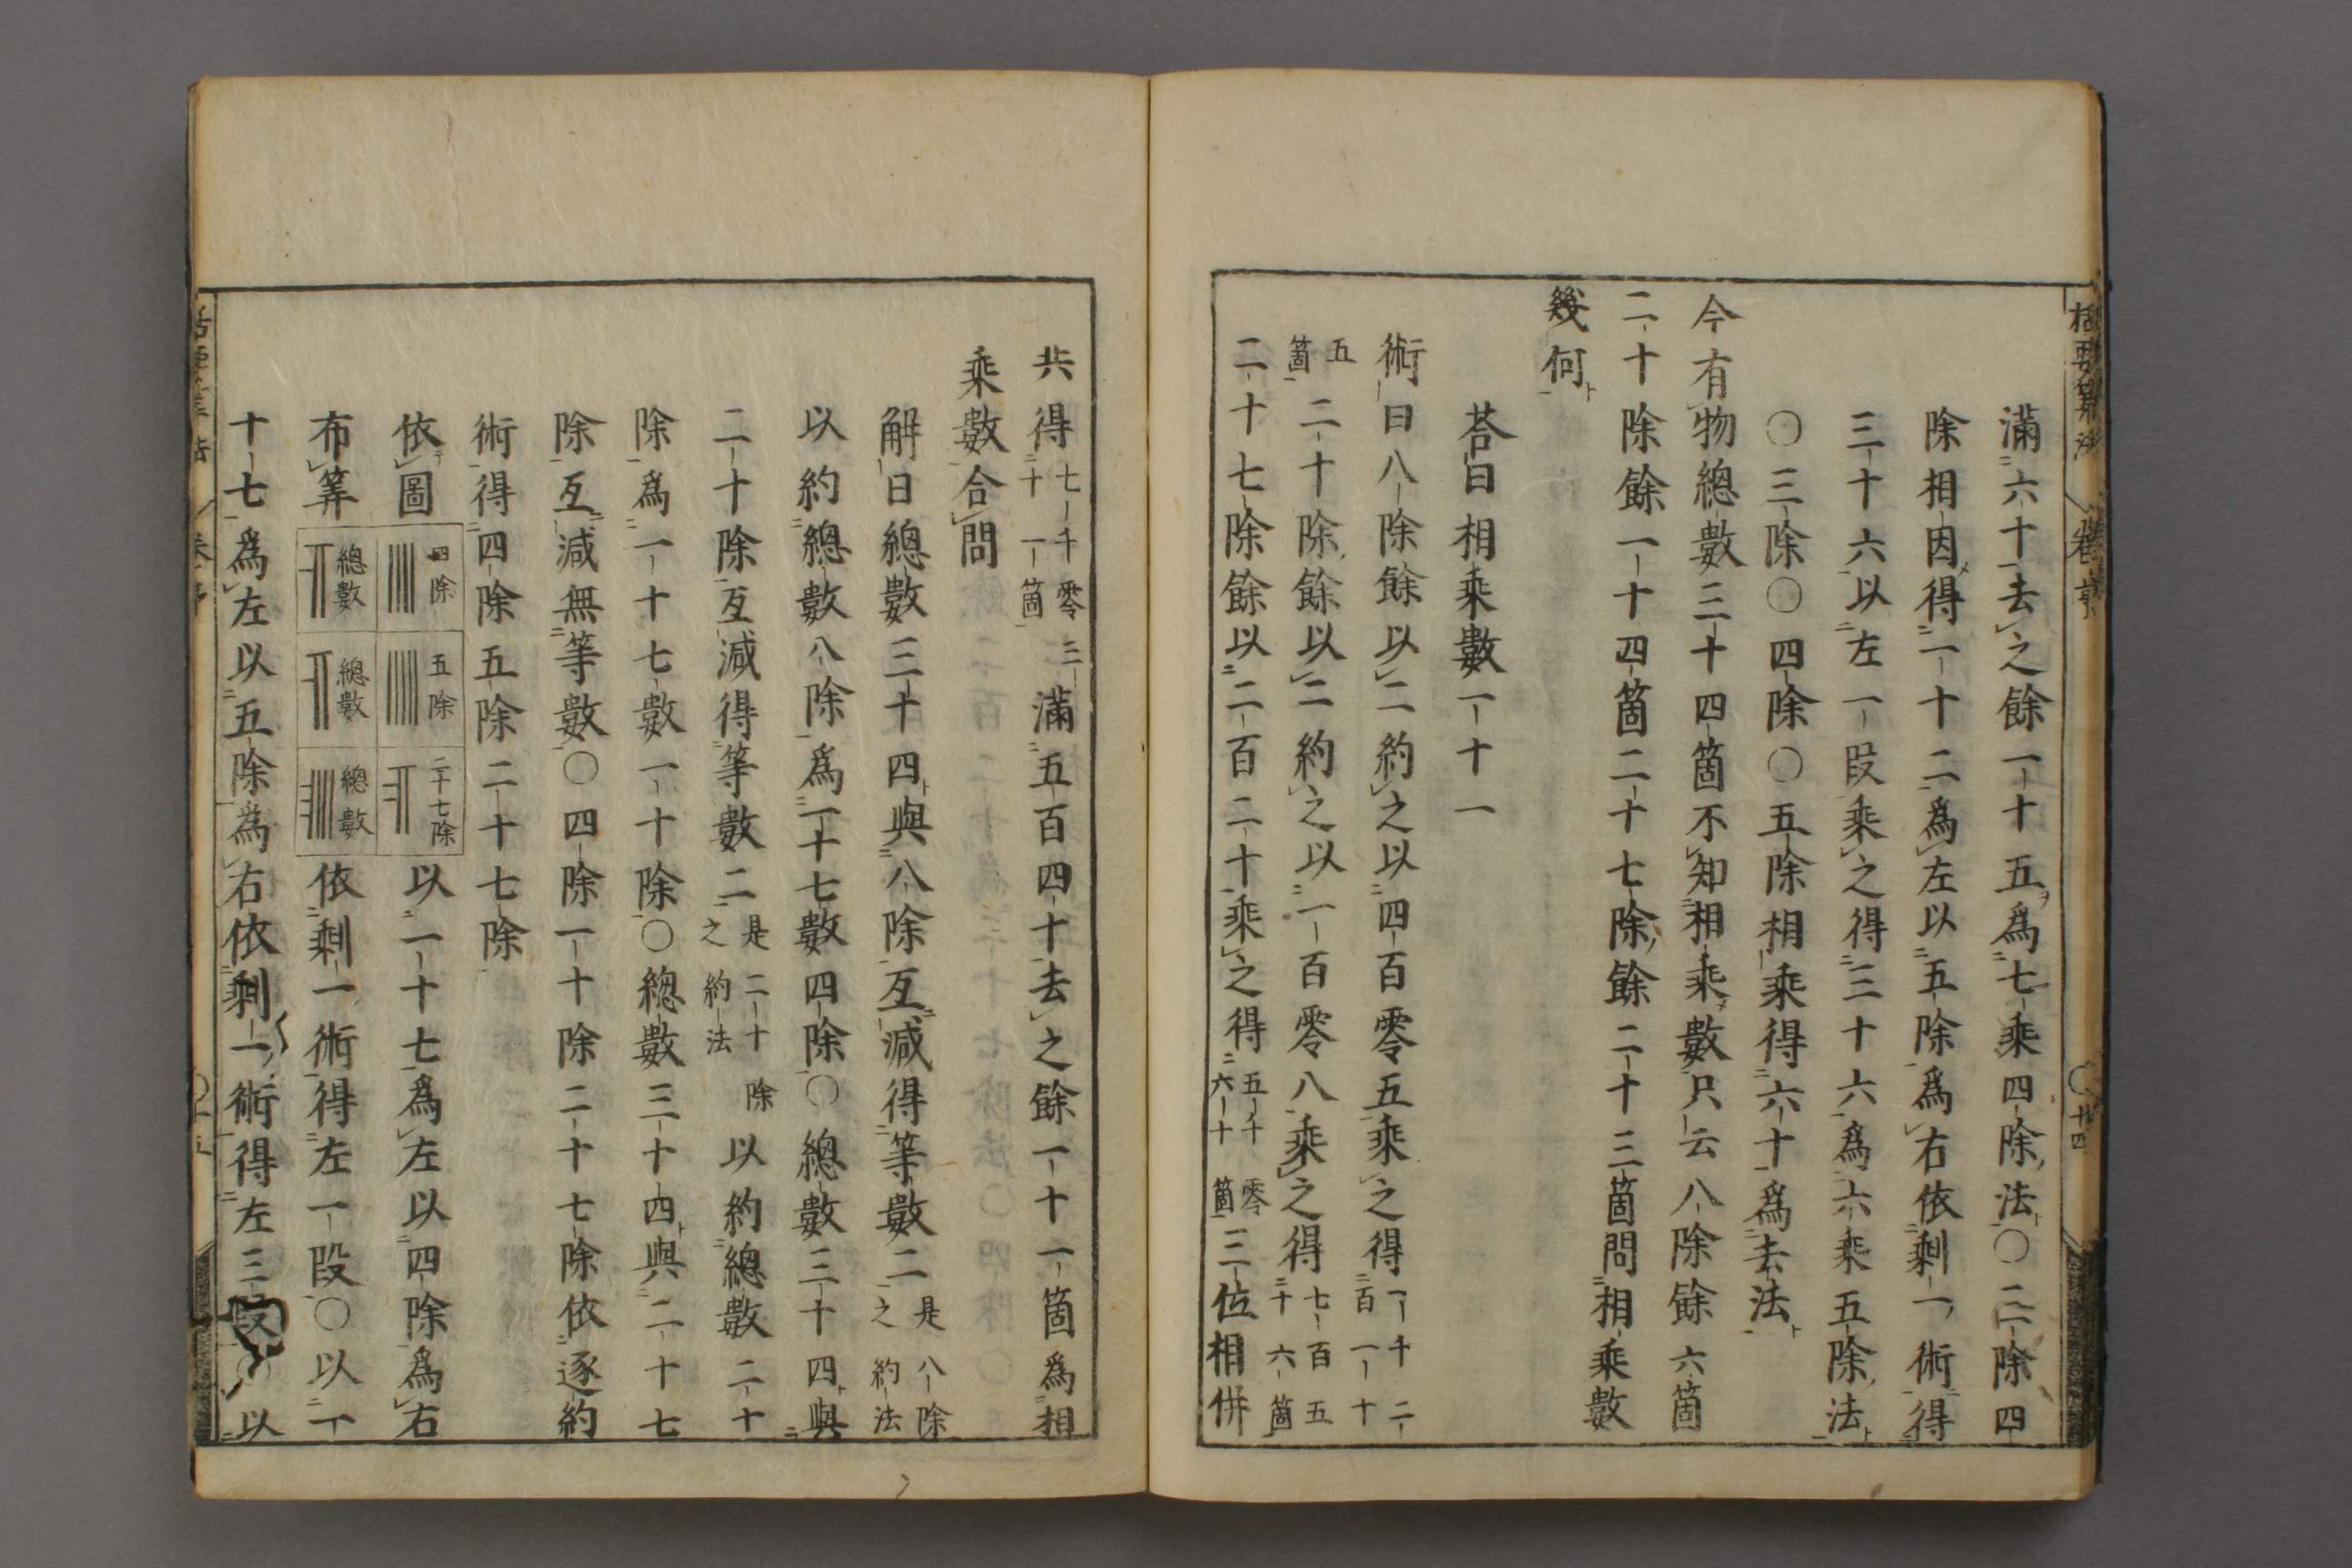 括要筭法 卷亨 ○廿四
滿六十去之餘一十五爲七乘四除法○二除四
除相因得一十二爲左以五除爲右依剩一術得
三十六以左一段乘之得三十六爲六乘五除法
○三除○四除○五除相乘得六十爲去法
今有物總數三十四箇不知相乘數只云八除餘六箇
二十除餘一十四箇二十七除餘二十三箇問相乘數
幾何
荅曰相乘數一十一
術曰八除餘以二約之以四百零五乘之得一千二百一十
五箇二十除餘以二約之以一百零八乘之得七百五十六箇
二十七除餘以二百二十乘之得五千零六十箇三位相併
共得七千零三十一箇滿五百四十去之餘一十一箇爲相
乘數合問
解曰總數三十四與八除互減得等數二是八除之約法
以約總數八除爲一十七數四除○總數三十四與
二十除互減得等數二是二十除之約法以約總數二十
除爲一十七數一十除○總數三十四與二十七
除互減無等數○四除一十除二十七除依逐約
術得四除五除二十七除
依圖四除五除二十七除以一十七爲左以四除爲右
布筭總數總數總數依剩一術得左一段○以一
十七爲左以五除爲右依剩一術得左三段○以